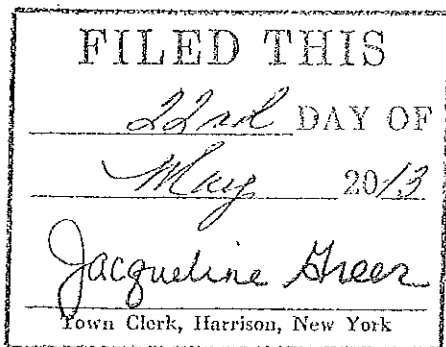 FILED THIS
22nd DAY OF
May 2013
Jacqueline Greer
Town Clerk, Harrison, New York